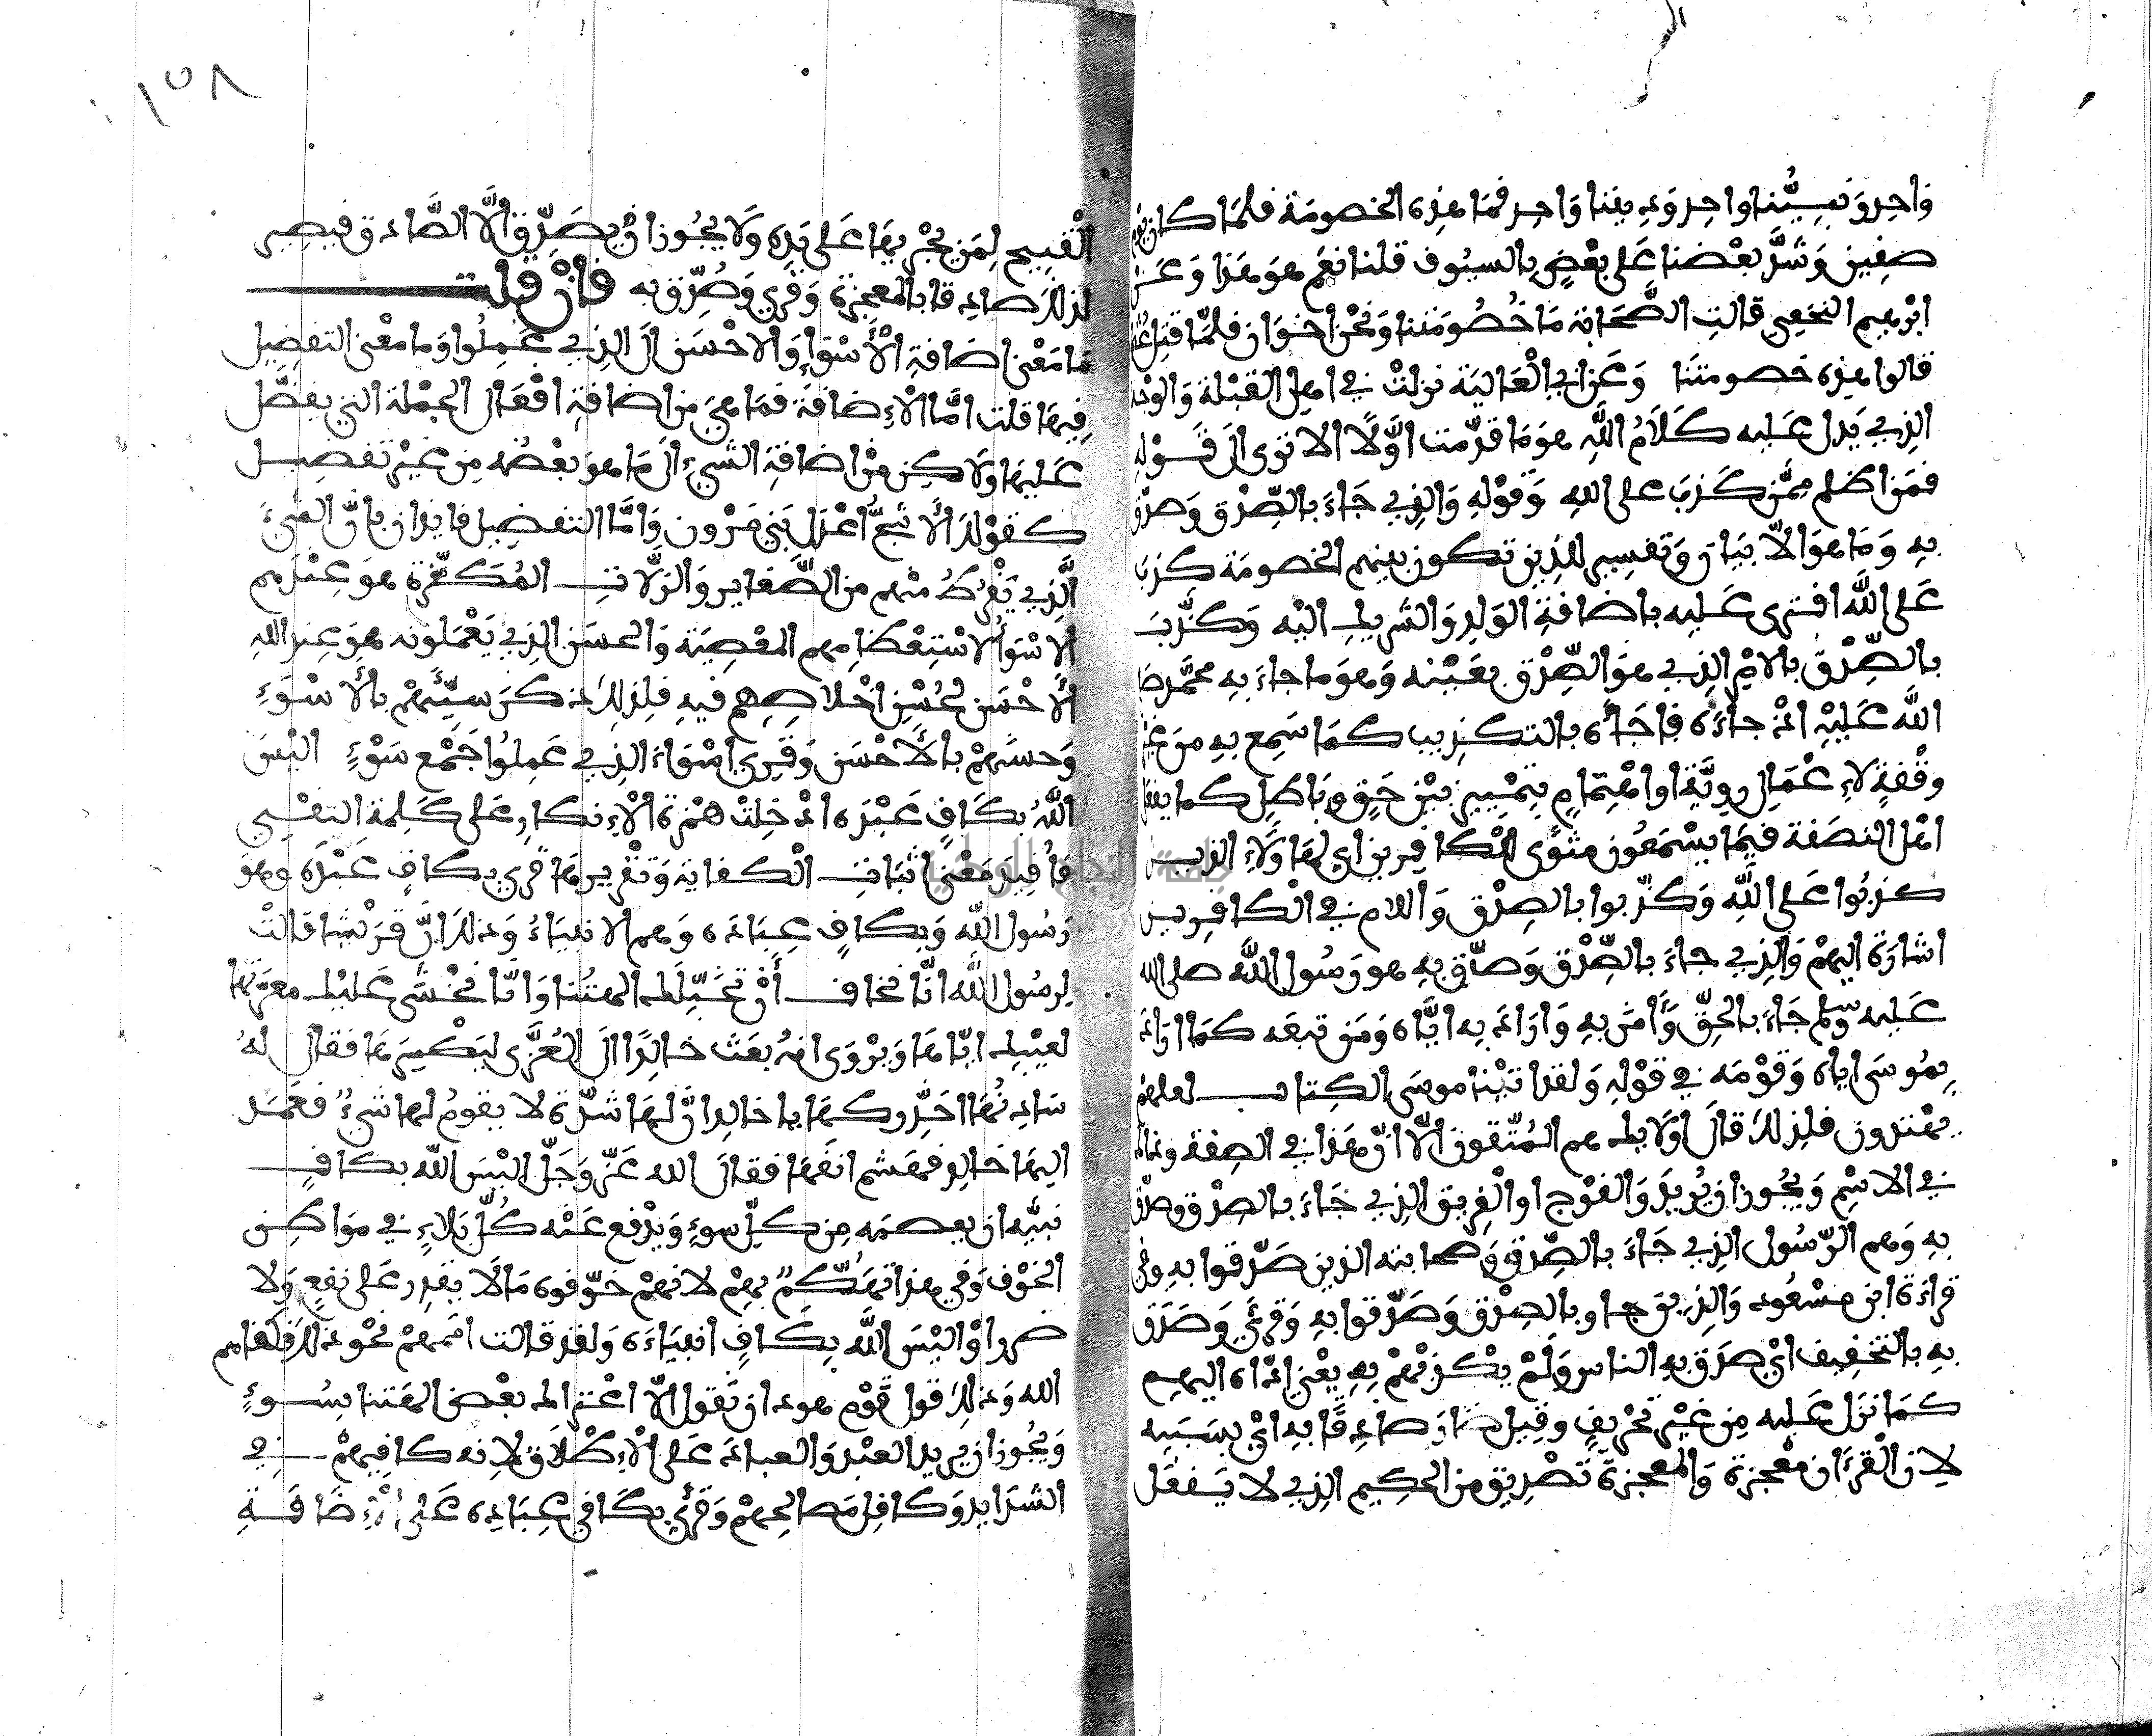 واحد ونبينا واحد وديننا واحد فما هذه الخصومة فلما كان يوم
صفين وشد بعضنا على بعض بالسيوف قلنا نعم هو هذا وعن
ابرهيم النخعي قالت الصحابة ما خصومتنا ونحن اخوان فلما قتل عثمن
قالوا هذه خصومتنا وعن ابي العالية نزلت في اهل القبلة والوجه
الذي يدل عليه كلام الله هو ما قدمت اولا الا ترى الى قوله
فمن اظلم ممن كذب على الله وقوله والذي جاء بالصدق وصدق
به وما هو الا بيان وتفسير للذين تكون بينهم الخصومة كذب
على الله افترى عليه باضافة الولد والشريك اليه وكذب
بالصدق بالامر الذي هو الصدق بعينه وهو ما جاء به محمد صلى
الله عليه اذ جاءه فاجأه بالتكذيب كما سمع به من غير
وقفة لاعمال روية او اهتمام بتمييز بين حق وباطل كما يفعل
اهل النصفة فيما يسمعون مثوى للكافرين اي لهاولاء الذين
كذبوا على الله وكذبوا بالصدق واللام في الكافرين
اشارة اليهم والذي جاء بالصدق وصدق به هو رسول الله صلى الله
عليه وسلم جاء بالحق وأامن به واراد به اياه ومن تبعه كما اراد
بموسى اياه وقومه في قوله ولقد اتينا موسى الكتاب لعلهم
يهتدون فلذلك قال اولايك هم المتقون الا ان هذا في الصفة وذاك
في الاسم ويجوز ان يريد والفوج او الفريق الذي جاء بالصدق وصدق
به وهم الرسول الذي جاء بالصدق وصحابته الذين صدقوا به وفي
قراءة ابن مسعود والذين جاو بالصدق وصدقوا به وقرئ وصدق
به بالتخفيف اي صدق به الناس ولم يكذبهم به يعني اداه اليهم
كما نزل عليه من غير تحريف وقيل صار صادقا به اي بسببه
لان القرءان معجزة والمعجزة تصديق من الحكيم الذي لا يفعل
١٥٨
القبيح لمن يجريها على يده ولا يجوز ان يصدق الا الصادق فيصير
لذلك صادقا بالمعجزة وقري وصدق به فان قلت
ما معنى اضافة الأسوإ والاحسن الى الذي عملوا وما معنى التفضيل
فيها قلت اما الاضافة فما هي من اضافة افعال الجملة التي يفضل
عليها ولاكن من اضافة الشيء الى ما هو بعضه من غير تفضيل
كقولك الأشج أعدل بني مرون واما التفضيل فايذان بان السيئ
الذي يفرط منهم من الصغاير والزلات المكفرة هو عندهم
الاسوأ لاستعظامهم المعصية والحسن الذي يعملونه هو عند الله
الأحسن لحسن اخلاصهم فيه فلذلك ذكر سيئهم بالأسوء
وحسنهم بالأحسن وقري اسواء الذي عملوا جمع سوء اليس
الله بكاف عبده ادخلت همزة الانكار على كلمة النفي
فأفيد معنى اثبات الكفاية وتقريرها قري بكاف عبده وهو
رسول الله وبكاف عباده وهم الانبياء وذلك ان قريشا قالت
لرسول الله انا نخاف أن تخبلك الهتنا وانا نخشى عليك معرتها
لعيبك اياها ويروى انه بعث خالدا الى العزى ليكسرها فقال له
سادنها احذركها يا خالد ان لها شدة لا يقوم لها شيء فعمد
اليها خالد فهشم انفها فقال الله عز وجل اليس الله بكاف
نبيه ان يعصمه من كل سوء ويدفع عنه كل بلاء في مواطن
الخوف وفي هذا تهكم بهم لانهم خوفوه ما لا يقدر على نفع ولا
ضر او اليس الله بكاف انبياءه ولقد قالت اممهم نحو ذلك فكفاهم
الله وذلك قول قوم هود ان نقول الا اعتراك بعض الهتنا بسوء
ويجوز ان يريد العبد والعباد على الاطلاق لانه كافيهم في
الشدايد وكافل مصالحهم وقرئ بكافي عباده على الاضافة